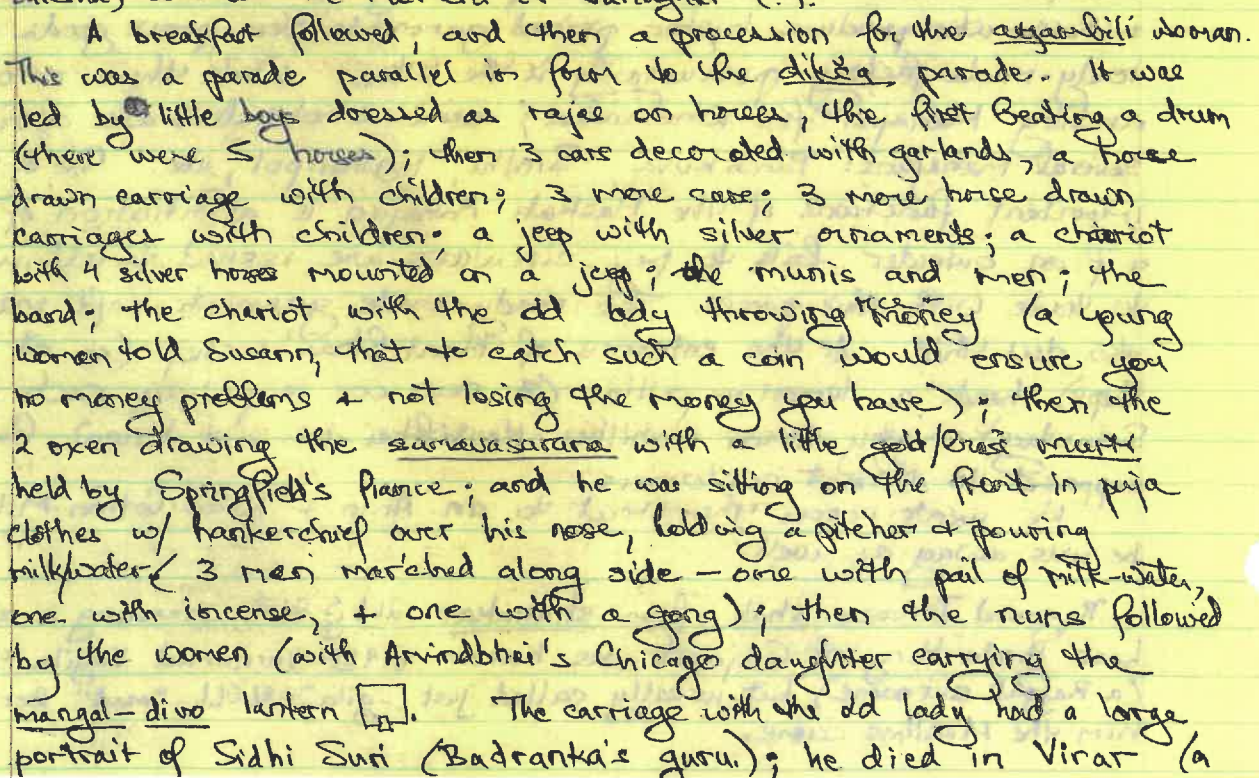 A breakfast followed, and then a procession for the ayambili woman.
This was a parade parallel in form to the dikśa parade. It was
led by little boys dressed as rajas on horses, the first beating a drum
(there were 5 horses); then 3 cars decorated with garlands, a horse
drawn carriage with children; 3 more cars; 3 more horse drawn
carriages with children; a jeep with silver ornaments; a chariot
with 4 silver horses mounted on a jeep; the munis and men; the
band; the chariot with the old lady throwing rice + money (a young
women told Susann, that to catch such a coin would ensure you
no money problems + not losing the money you have); then the
2 oxen drawing the samavasarana with a little gold/brass murti
held by Springfield's fiance; and he was sitting on the front in puja
clothes w/ hankerchief over his nose, holding a pitcher + pouring
milk/water (3 men marched along side – one with pail of milk-water,
one with incense, + one with a gong); then the nuns followed
by the women (with Arvindbhai's Chicago daughter carrying the
mangal-divo lantern. The carriage with the old lady had a large
portrait of Sidhi Suri (Badranka's guru.); he died in Virar (a